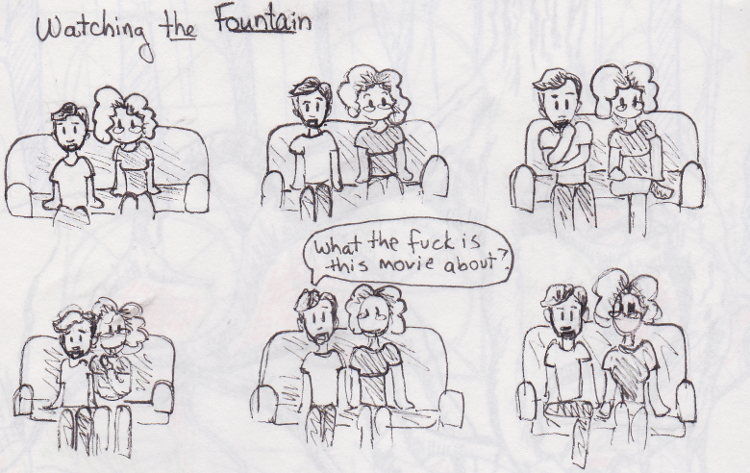 Watching the Fountain
What the fuck is
this movie about?